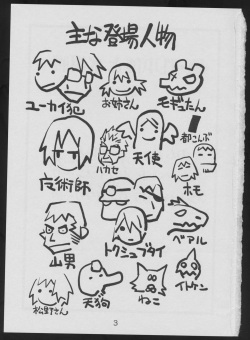 主な登場人物
ユーカイ犯
お姉さん
モギュたん
都こんぶ
天使
ハカセ
魔術師
ホモ
山男
トクシュブタイ
ベアル
松野さん
天狗
ねこ
イトケン
3